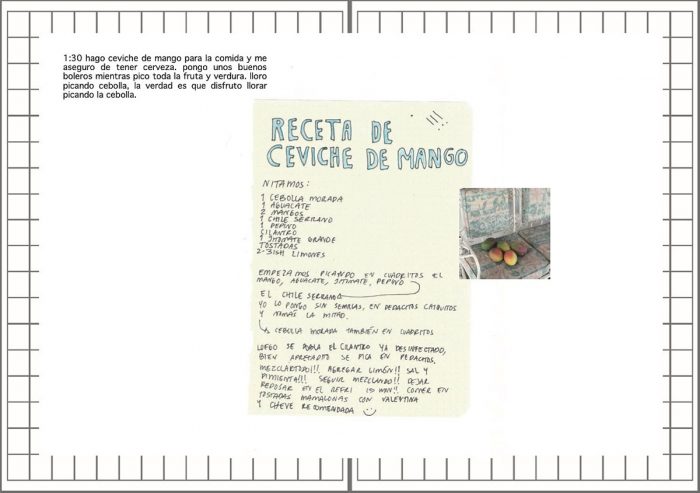 1:30 hago ceviche de mango para la comida y me
aseguro de tener cerveza. pongo unos buenos
boleros mientras pico toda la fruta y verdura. lloro
picando cebolla, la verdad es que disfruto llorar
picando la cebolla.
RECETA DE
CEVICHE DE MANGO
NITAMOS:
1 CEBOLLA MORADA
1 AGUACATE
2 MANGOS
1 CHILE SERRANO
1 PEPINO
CILANTRO
1 JITOMATE GRANDE
TOSTADAS
2-3ISH LIMONES
EMPEZAMOS PICANDO EN CUADRITOS EL
MANGO, AGUACATE, JITOMATE, PEPINO
EL CHILE SERRANO
YO LO PONGO SIN SEMILLAS, EN PEDACITOS CHIQUITOS
Y NOMÁS LA MITAD.
CEBOLLA MORADA TAMBIÉN EN CUADRITOS
LUEGO SE DOBLA EL CILANTRO YA DESINFECTADO,
BIEN APRETADITO SE PICA EN PEDACITOS.
MEZCLARTODO!!! AGREGAR LIMÓN!! SAL Y
PIMIENTA!!! SEGUIR MEZCLANDO!! DEJAR
REPOSAR EN EL REFRI 150 MIN!! COMER EN
TOSTADAS MAMALONAS CON VALENTINA
Y CHEVE RECOMENDADA